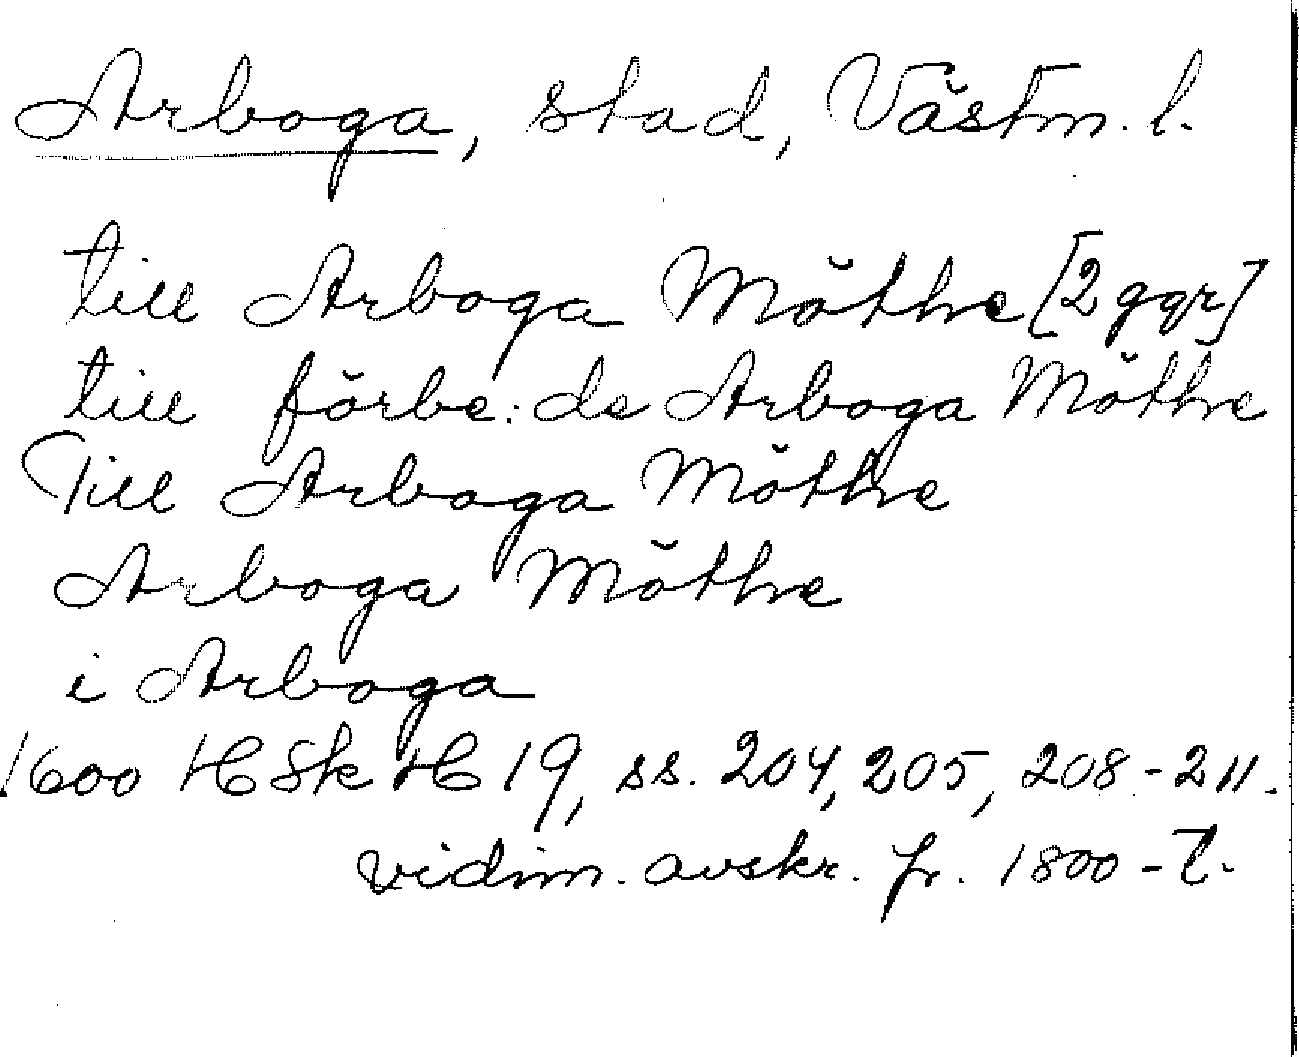 Arboga, stad, Västm. l.
till Arboga Mŏthe [2 ggr]
till fŏrbe: de Arboga Mŏthe
Till Arboga Mŏthe
Arboga Mŏthe
i Arboga
1600 HSk H 19, ss. 204, 205, 208-211.
vidim. avskr. fr. 1800-t.